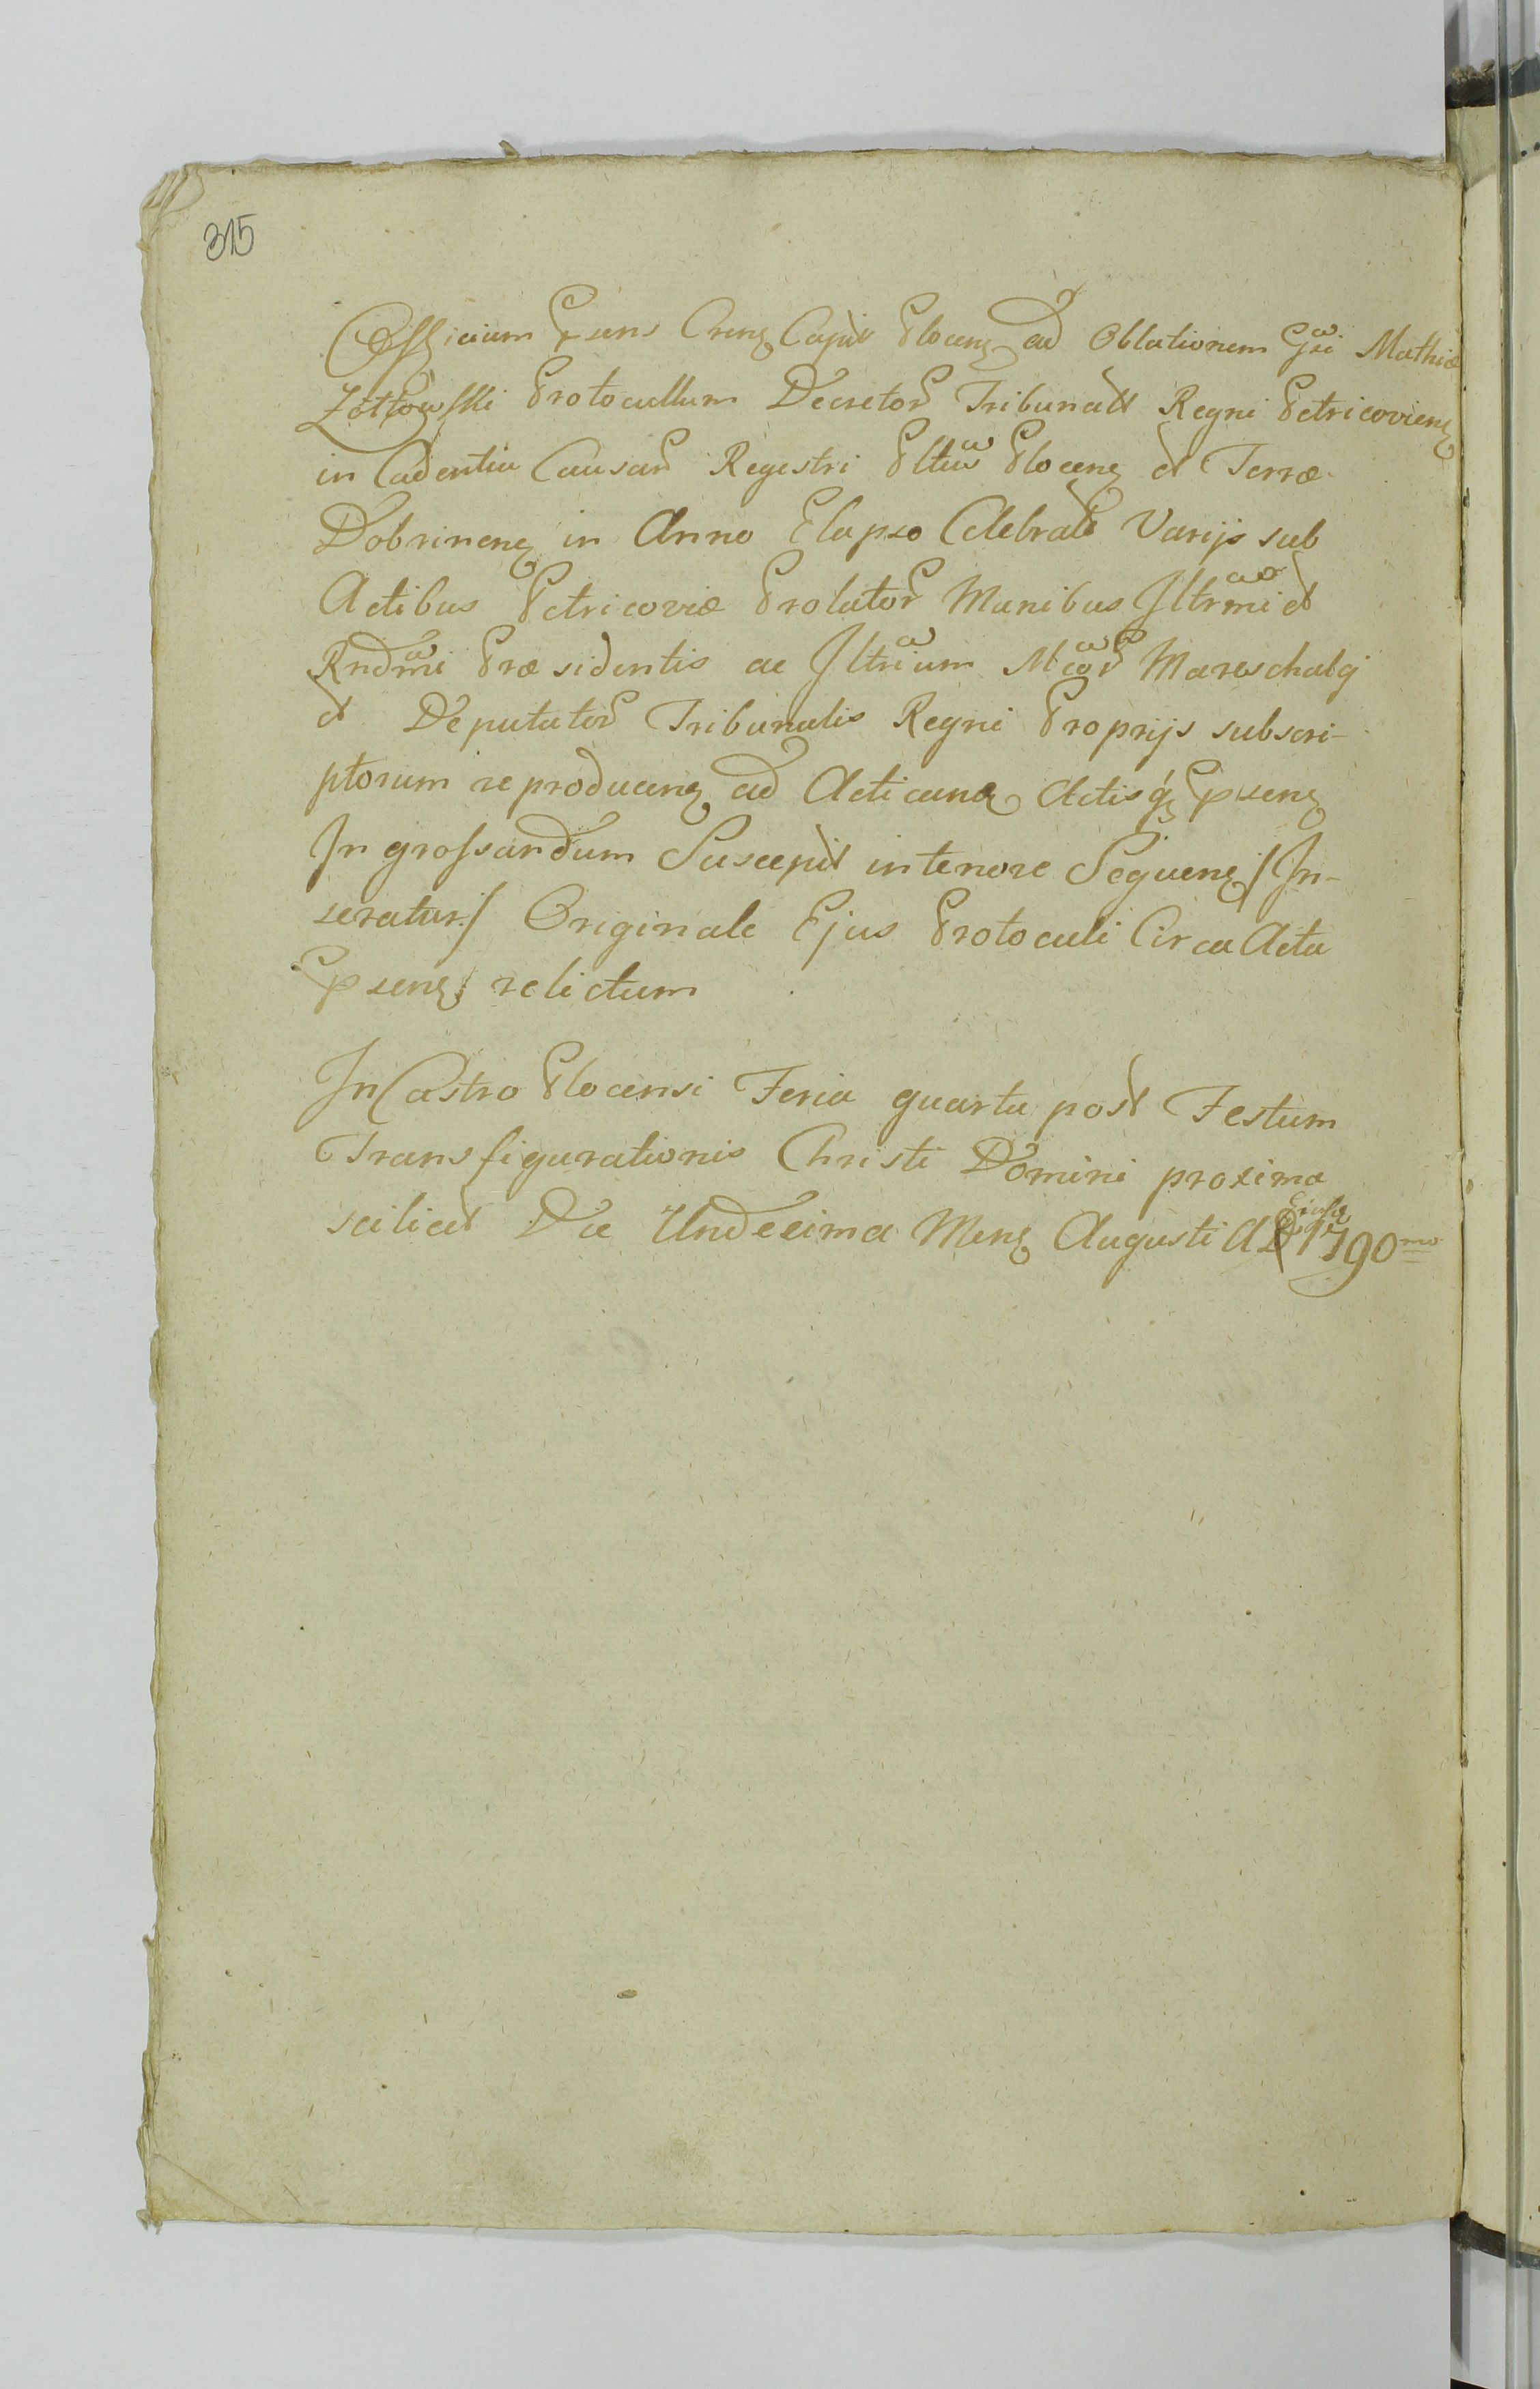 315
Officium Psens Crens Capit Plocens ad Oblationem Gsi Mathiæ
Zołtowski Protocullum Decretor Tribunalt Regni Petricoviens
in Cadentia Causar Regestri Pltus Plocens et Terræ
Dobrinens in Anno Elapso Celebrat Varijs sub
Actibus Petricoviæ Prolator Manibus Jltrmi et
Rndmi Præsidentis ac Jltrium Mcor Mareschalçi
et Deputator Tribunalis Regni Proprijs subscri-
ptorum reproducens ad Acticand Actisq Psens
Ingrossandum Suscepit in tenore Sequens / In-
seratur / Originale Ejus Protoculi Circa Acta
Psens relictum
In Castro Plocensi Feria quarta post Festum
Transfigurationis Christi Domini proxima
scilicet Die Undecima Mens Augusti AD 1790mo